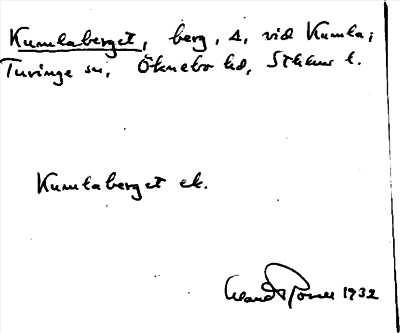 Kumlaberget, berg, Δ, vid Kumla i
Turinge sn, Öknebo hd, Sthlms l.
Kumlaberget ek.
1932